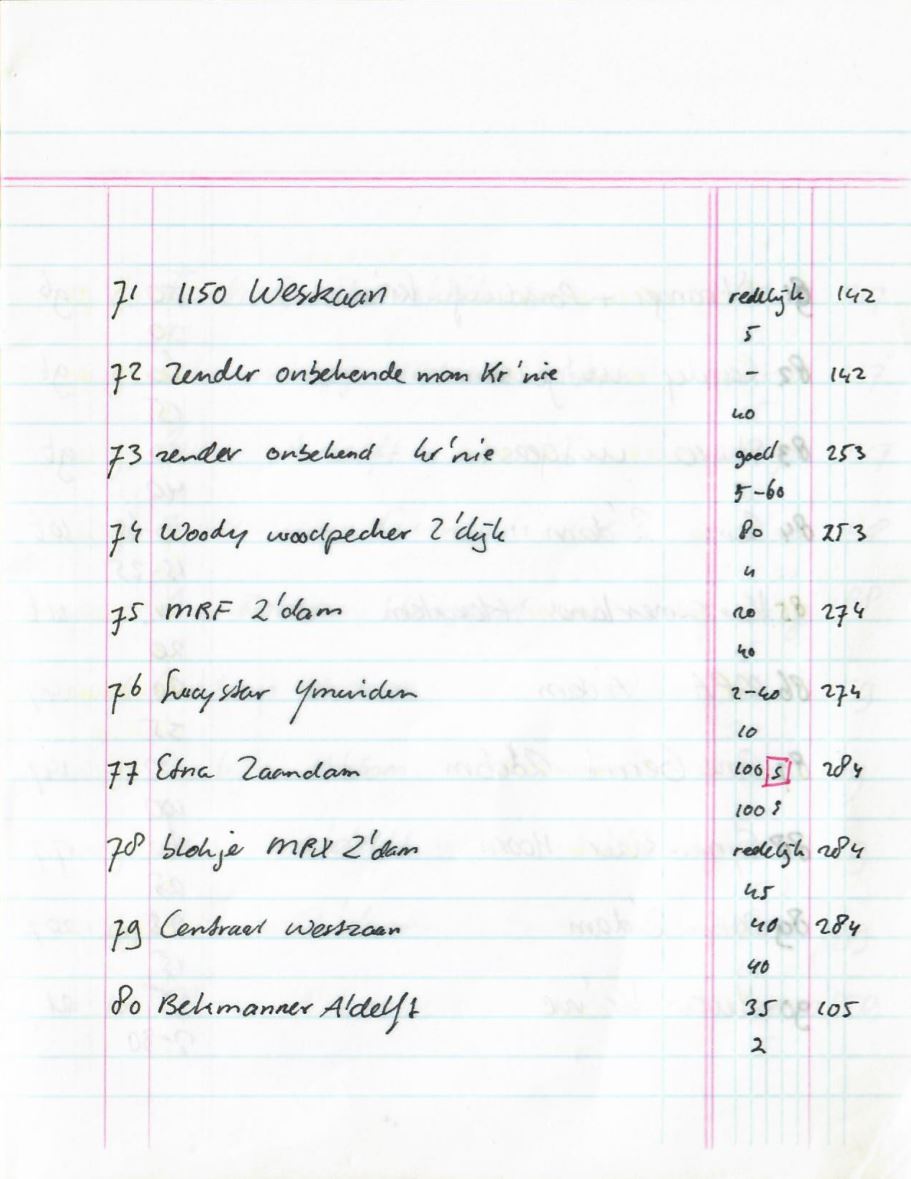 71 1150 Westzaan redelijk 142
5
72 Zender onbekende man Kr'nie - 142
40
73 zender onbekend kr'nie goed 253
5-60
74 Woody woodpecker Z'dijk 80 253
4
75 MRF Z'dam 20 274
40
76 Ymuiden 2-40 274
10
77 Etna Zaandam 100 s 284
100 s
78 blokje MRX Z'dam redelijk 284
45
79 Centraal westzaan 40 284
40
80 Bekmanner A'delft 35 105
2